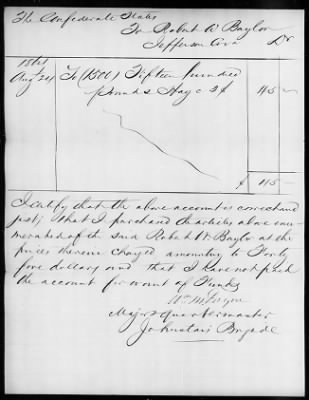 The Confederate States
To Robert W Baylor
Jefferson Co va Dr
1861
Augt 24 To (1500) Fifteen hundred
pounds Hay @ 3¢ 45 —
$ 45 —
I certify that the above account is correct and
just; that I purchased the articles above enu-
merated of the said Robert W. Baylor at the
prices therein charged amounting to Forty
five dollars and that I have not paid
the account for want of Funds
Wm M.
Major & quartermaster
Johnston's Brigade